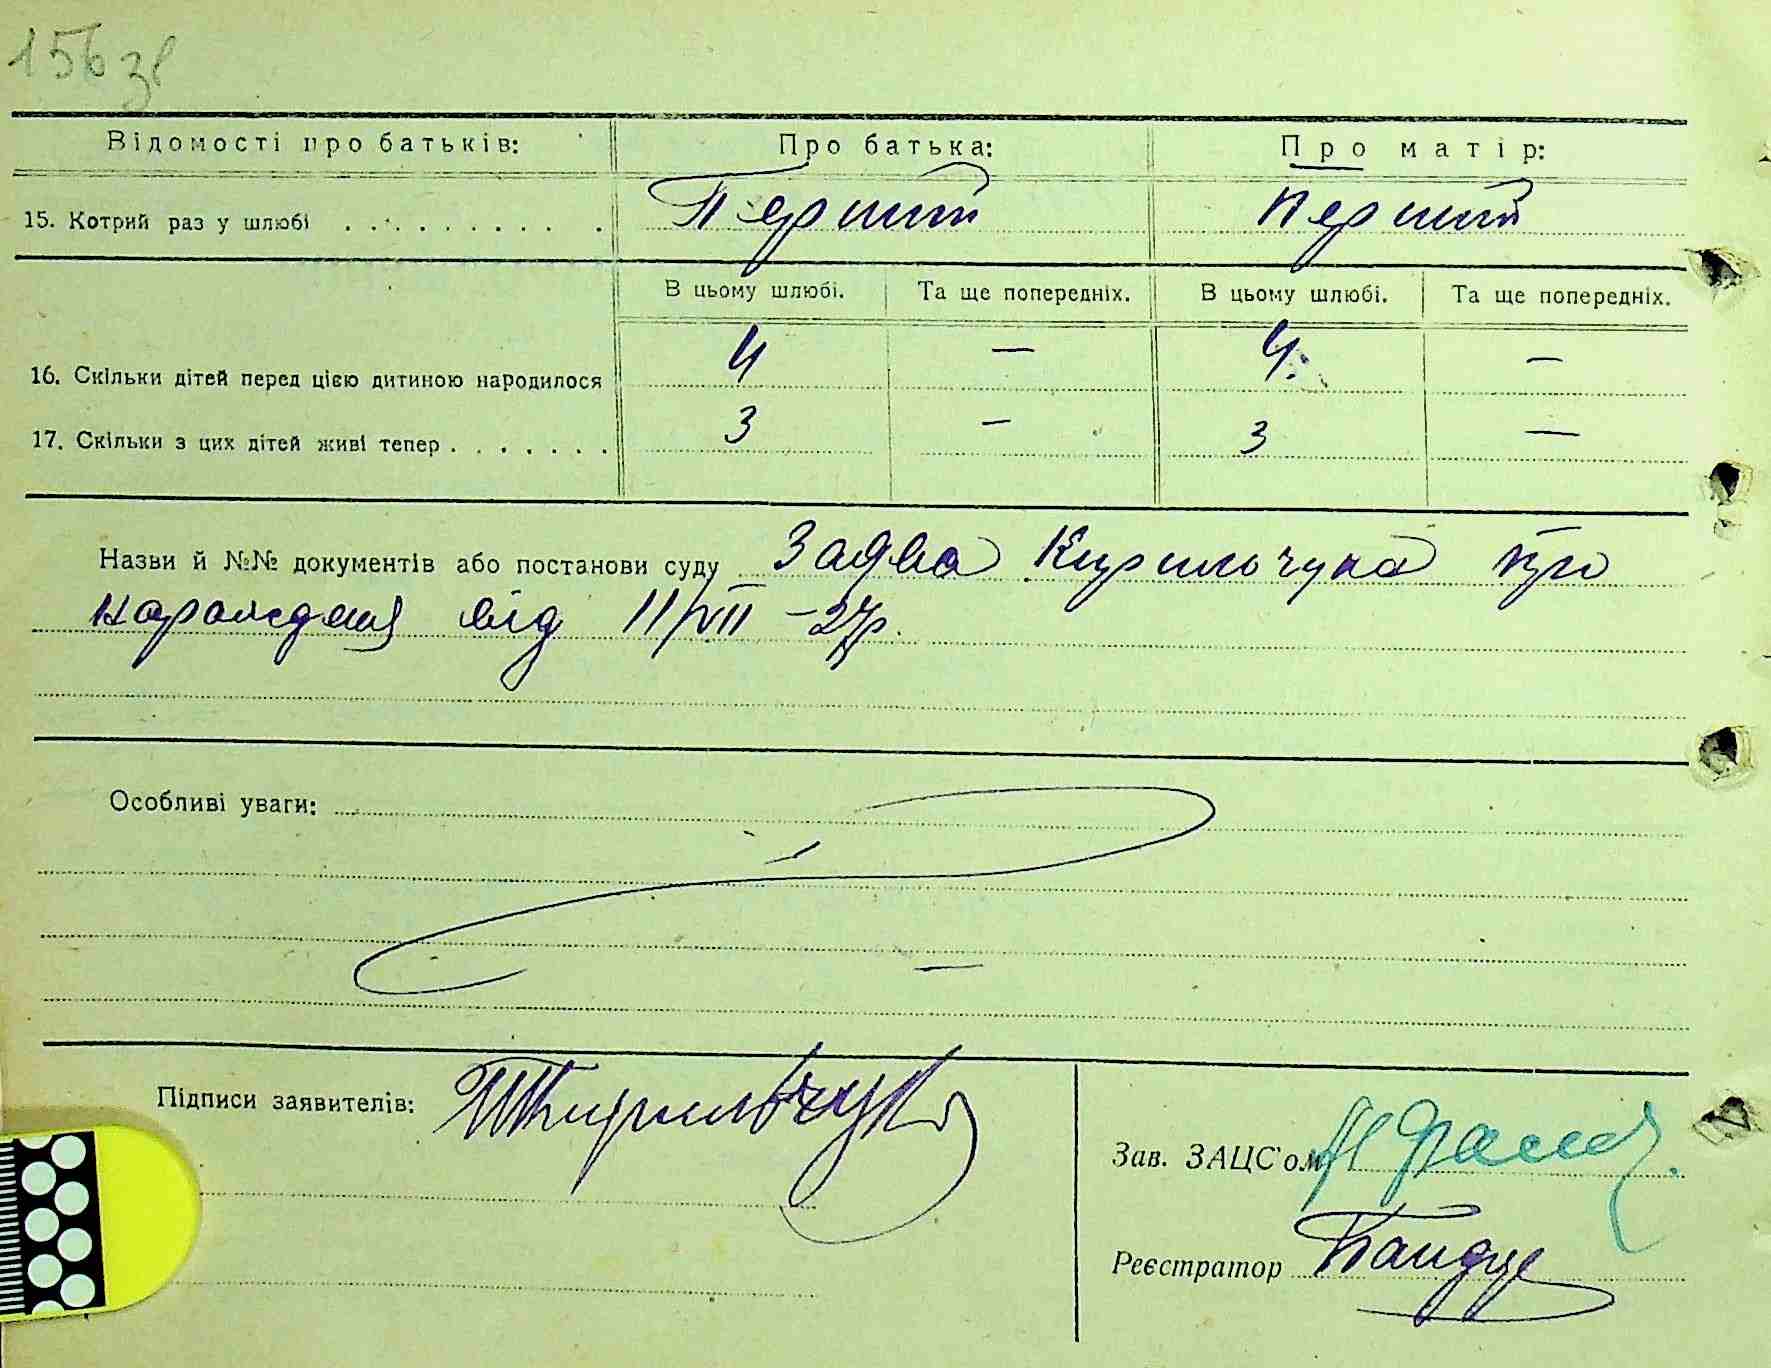 156 зв
Відомості про батьків: Про батька: Про матір:
15. Котрий раз у шлюбі . . . . . . . . . . Перший Перший
В цьому шлюбі. Та ще попередніх. В цьому шлюбі. Та ще попередніх.
16. Скільки дітей перед цією дитиною народилося 4 — 4. —
17. Скільки з цих дітей живі тепер . . . . . . . 3 — 3 —
Назви й №№ документів або постанови суду Заява Кирильчука про
народження від 11/VIII – 27р.
Особливі уваги:
Підписи заявителів: Кирильчук
Зав. ЗАЦС'ом
Реєстратор